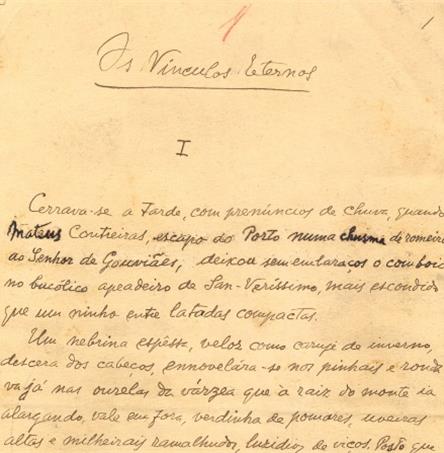 1
1
Os Vínculos Eternos
I
Cerrava-se a tarde, com prenúncios de chuva, quando
Mateus Contreiras, escapo do Porto numa chusma de romeiro
ao Senhor de Gouviães, deixou sem embaraços o comboio
no bucólico apeadeiro de San-Veríssimo, mais escondido
que um ninho entre latadas compactas.
Um nebrina espêssa, veloz como caruje de inverno,
descera dos cabeços, ennovelára-se nos pinhais e ronda
va já nas ourelas da várzea que à raiz do monte ia
alargando, vale em fora, verdinha de pomares, uveiras
altas e milheirais ramalhudos, luzidios de viços. Posto que